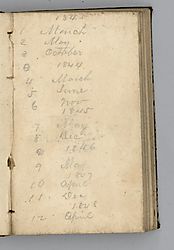 1843
1 March
2 May
3 October
1844
4 March
5 June
6 Nov
1845
7 May
8 Dec
1846
9 May
1847
10 April
11 Dec
1848
12 April